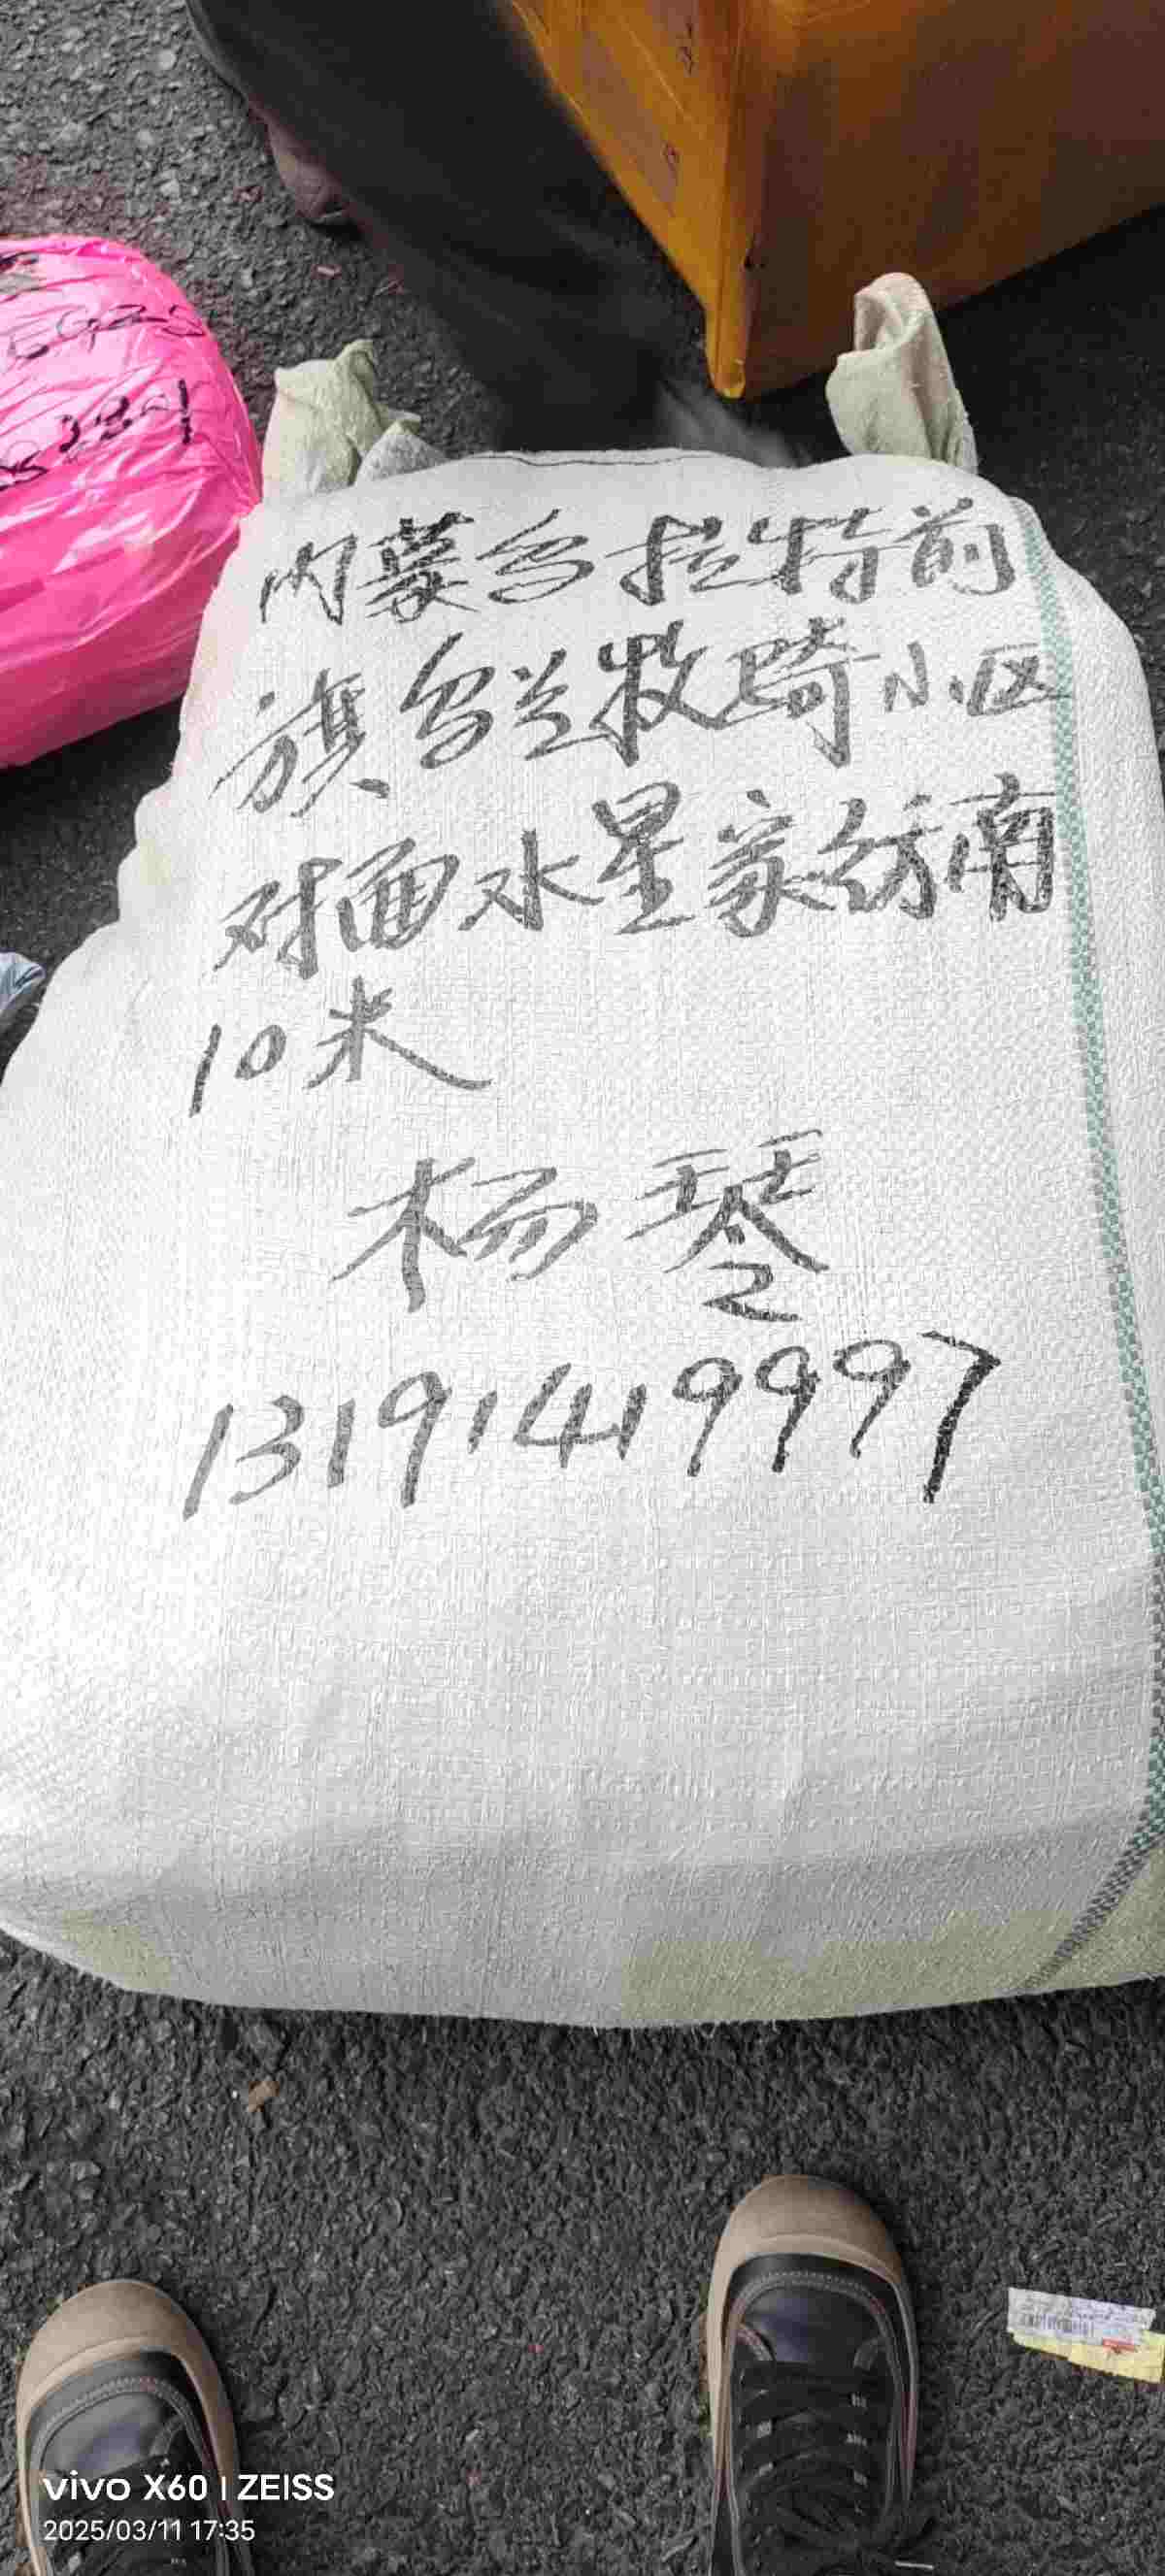 内蒙乌拉特前
旗乌兰牧骑小区
对面水星家纺南
10米
杨琴
13191419997
vivo X60 | ZEISS
2025/03/11 17:35